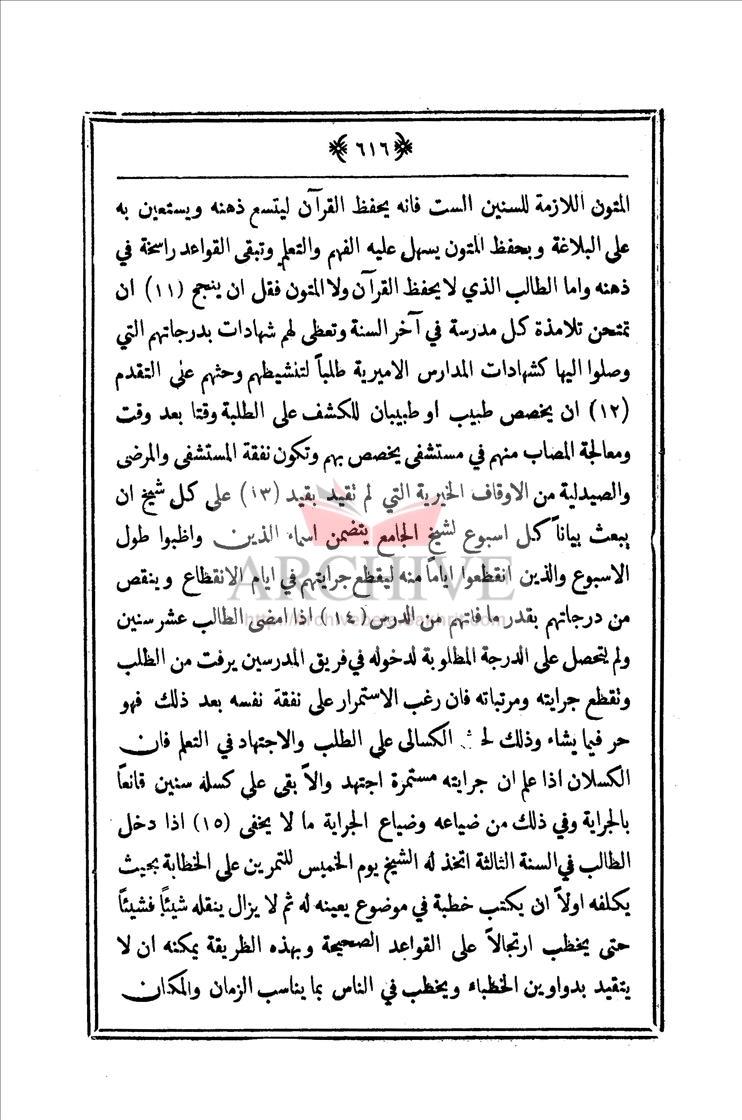 ٦١٦
المتون اللازمة للسنين الست فانه يحفظ القرآن ليتسع ذهنه ويستعين به
على البلاغة وبحفظ المتون يسهل عليه الفهم والتعلم وتبقى القواعد راسخة في
ذهنه واما الطالب الذي لا يحفظ القرآن ولا المتون فقل ان ينجح (١١) ان
تمتحن تلامذة كل مدرسة في آخر السنة وتعطى لهم شهادات بدرجاتهم التي
وصلوا اليها كشهادات المدارس الاميرية طلباً لتنشيطهم وحثهم على التقدم
(١٢) ان يخصص طبيب او طبيبان للكشف على الطلبة وقتا بعد وقت
ومعالجة المصاب منهم في مستشفى يخصص بهم وتكون نفقة المستشفى والمرضى
والصيدلية من الاوقاف الخيرية التي لم تقيد بقيد (١٣) على كل شيخ ان
يبعث بياناً كل اسبوع لشيخ الجامع يتضمن اسماء الذين واظبوا طول
الاسبوع والذين انقطعوا اياماً منه ليقطع جرايتهم في ايام الانقطاع وينقص
من درجاتهم بقدر ما فاتهم من الدرس (١٤) اذا امضى الطالب عشر سنين
ولم يتحصل على الدرجة المطلوبة لدخوله في فريق المدرسين يرفت من الطلب
وتقطع جرايته ومرتباته فان رغب الاستمرار على نفقة نفسه بعد ذلك فهو
حر فيما يشاء وذلك الكسالى على الطلب والاجتهاد في التعلم فان
الكسلان اذا علم ان جرايته مستمرة اجتهد والاّ بقى على كسله سنين قانعاً
بالجراية وفي ذلك من ضياعه وضياع الجراية ما لا يخفى (١٥) اذا دخل
الطالب في السنة الثالثة اتخذ له الشيخ يوم الخميس للتمرين على الخطابة بحيث
يكلفه اولاً ان يكتب خطبة في موضوع يعينه له ثم لا يزال ينقله شيئاً فشيئاً
حتى يخطب ارتجالاً على القواعد الصحيحة وبهذه الطريقة يمكنه ان لا
يتقيد بدواوين الخطباء ويخطب في الناس بما يناسب الزمان والمكان
ARCHIVE